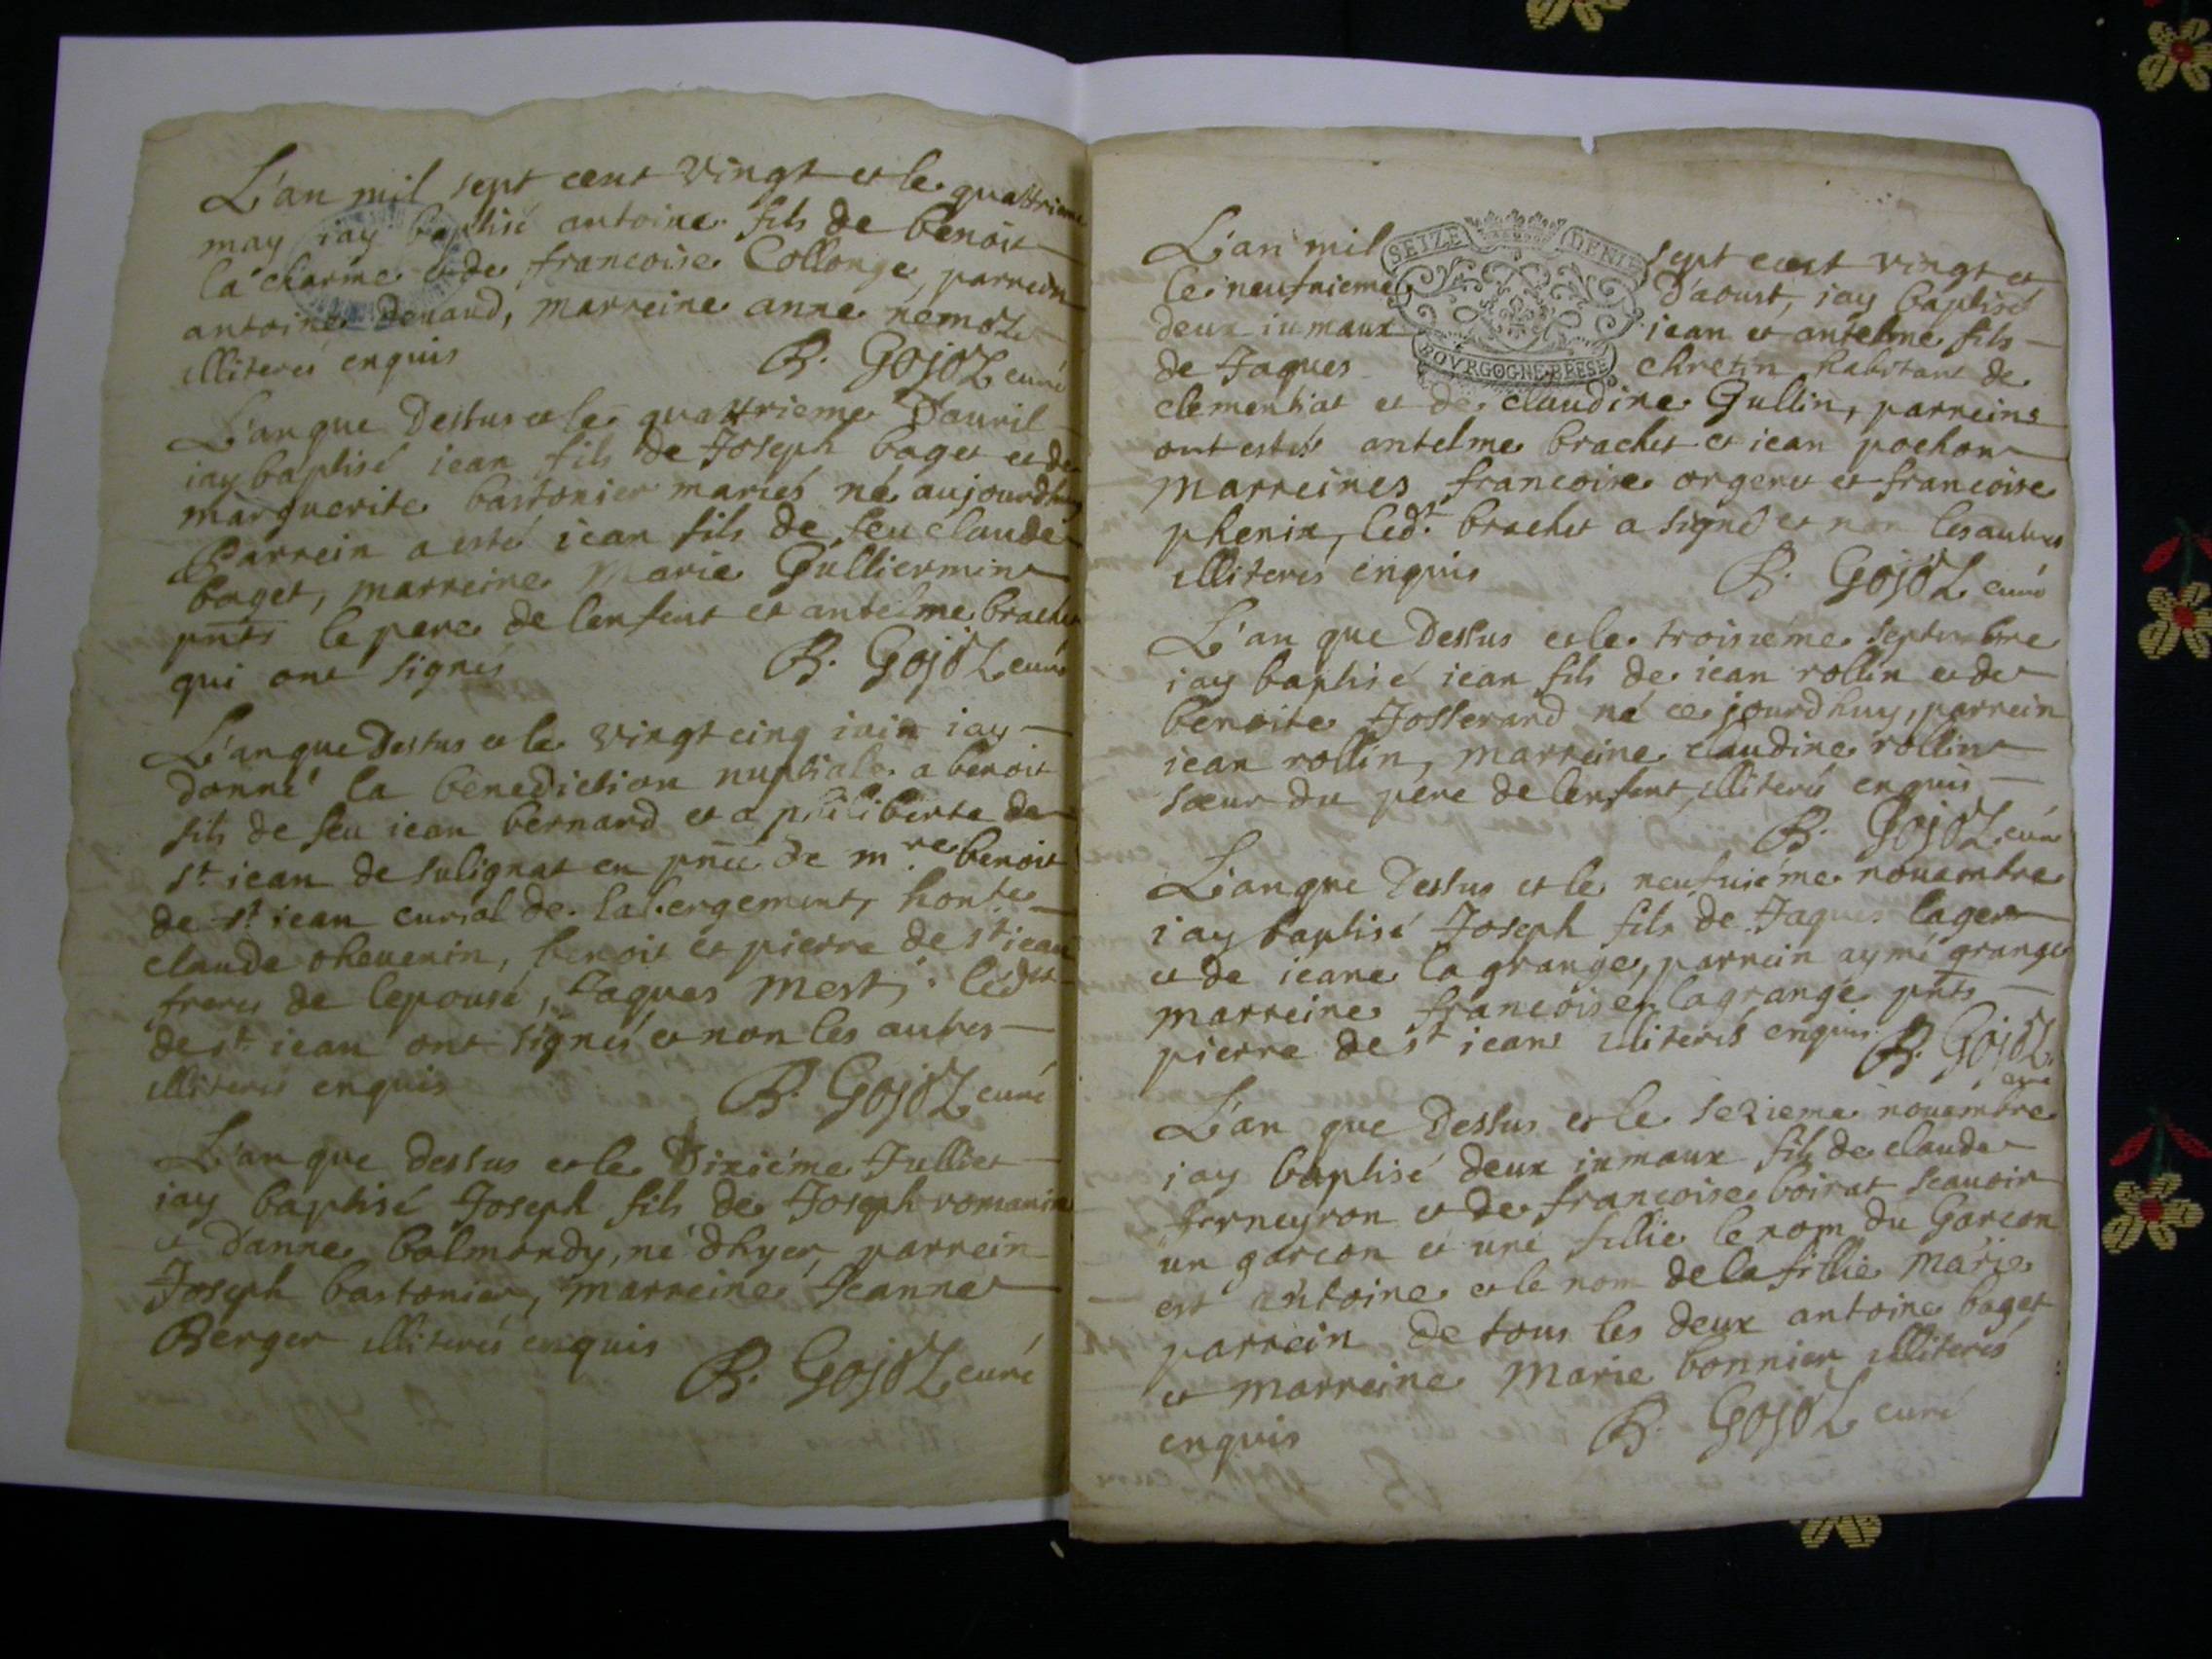 L'an mil sept cent vingt et le quattrieme
may iay baptisé antoine fils de benoit
la charme et de francoise Collonge, parrein
antoine Denaud, marreine anne nemoz
illiterés enquis B. Gojoz curé
L'an que Dessus et le quattrieme D'auril
iay baptisé iean fils de Joseph baget et de
marguerite bastonier mariés né aujourdhuy
Parrein a esté iean fils de feu claude
baget, marreine Marie Gulliermin
pnts le pere de lenfent et antelme brachet
qui ont signés B. Gojoz curé
L'an que Dessus et le vingt cinq iuin iay
donné la benediction nuptiale a benoit
fils de feu iean bernard et a philiberte de
st iean de sulignat en pnce de mre benoit
de st iean curial de labergement, honte
claude chevenin, benoit et pierre de st iean
freres de lepouse, Jaques Mest, ledst
de st iean ont signés et non les autres
illiterés enquis B. Gojoz curé
L'an que dessus et le Dixiéme Julliet
iay baptisé Joseph fils de Joseph romanin
et d'anne balmondy, né dhyer, parrein
Joseph bastonier, marreine Jeanne
Berger illiterés enquis
B. Gojoz curé
L'an mil sept cent vingt et
SEIZE DENIE
le neufuieme D'aoust, iay baptisé
deux iumaux iean et antelme fils
de Jaques chretin habitant de
BOVRGOGNE BRESE
clementiat et de claudine Gullin, parreins
ont estés antelme brachet et iean pochon
marreines francoise orgeret et francoise
phenix, ledt brachet a signé et non les autres
illiterés enquis B. Gojoz curé
L'an que Dessus et le troisiéme septembre
iay baptisé iean fils de iean rollin et de
benoite Josserand né ce jourdhuy, parrein
iean rollin, marreine claudine rollin
sœur du pere de lenfent, illiterés enquis
B. Gojoz curé
L'an que Dessus et le neufuiéme nouembre
iay baptisé Joseph fils de Jaques lager
et de ieane la grange, parrein aymé grange
marreine francoise lagrange pnts
pierre de st iean illiterés enquis B. Gojoz
curé
L'an que Dessus et le sezieme nouembre
iay baptisé deux iumaux fils de claude
ferneyron et de francoise boirat scauoir
un garcon et une fillie le nom du Garcon
est antoine et le nom de la fillie Marie
parrein de tous les deux antoine baget
et marreine Marie bonnier illiterés
enquis B. Gojoz curé